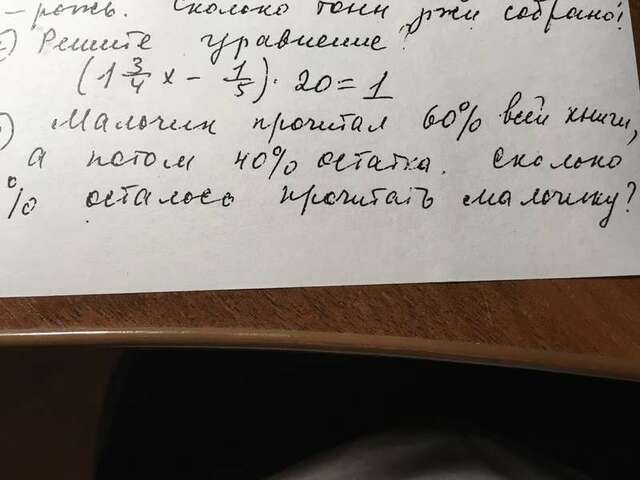 – рожь. Сколько тонн ржи собрано?
) Решите уравнение:
(1 3/4 x − 1/5) · 20 = 1
) Мальчик прочитал 60% всей книги,
а потом 40% остатка. Сколько
% осталось прочитать мальчику?